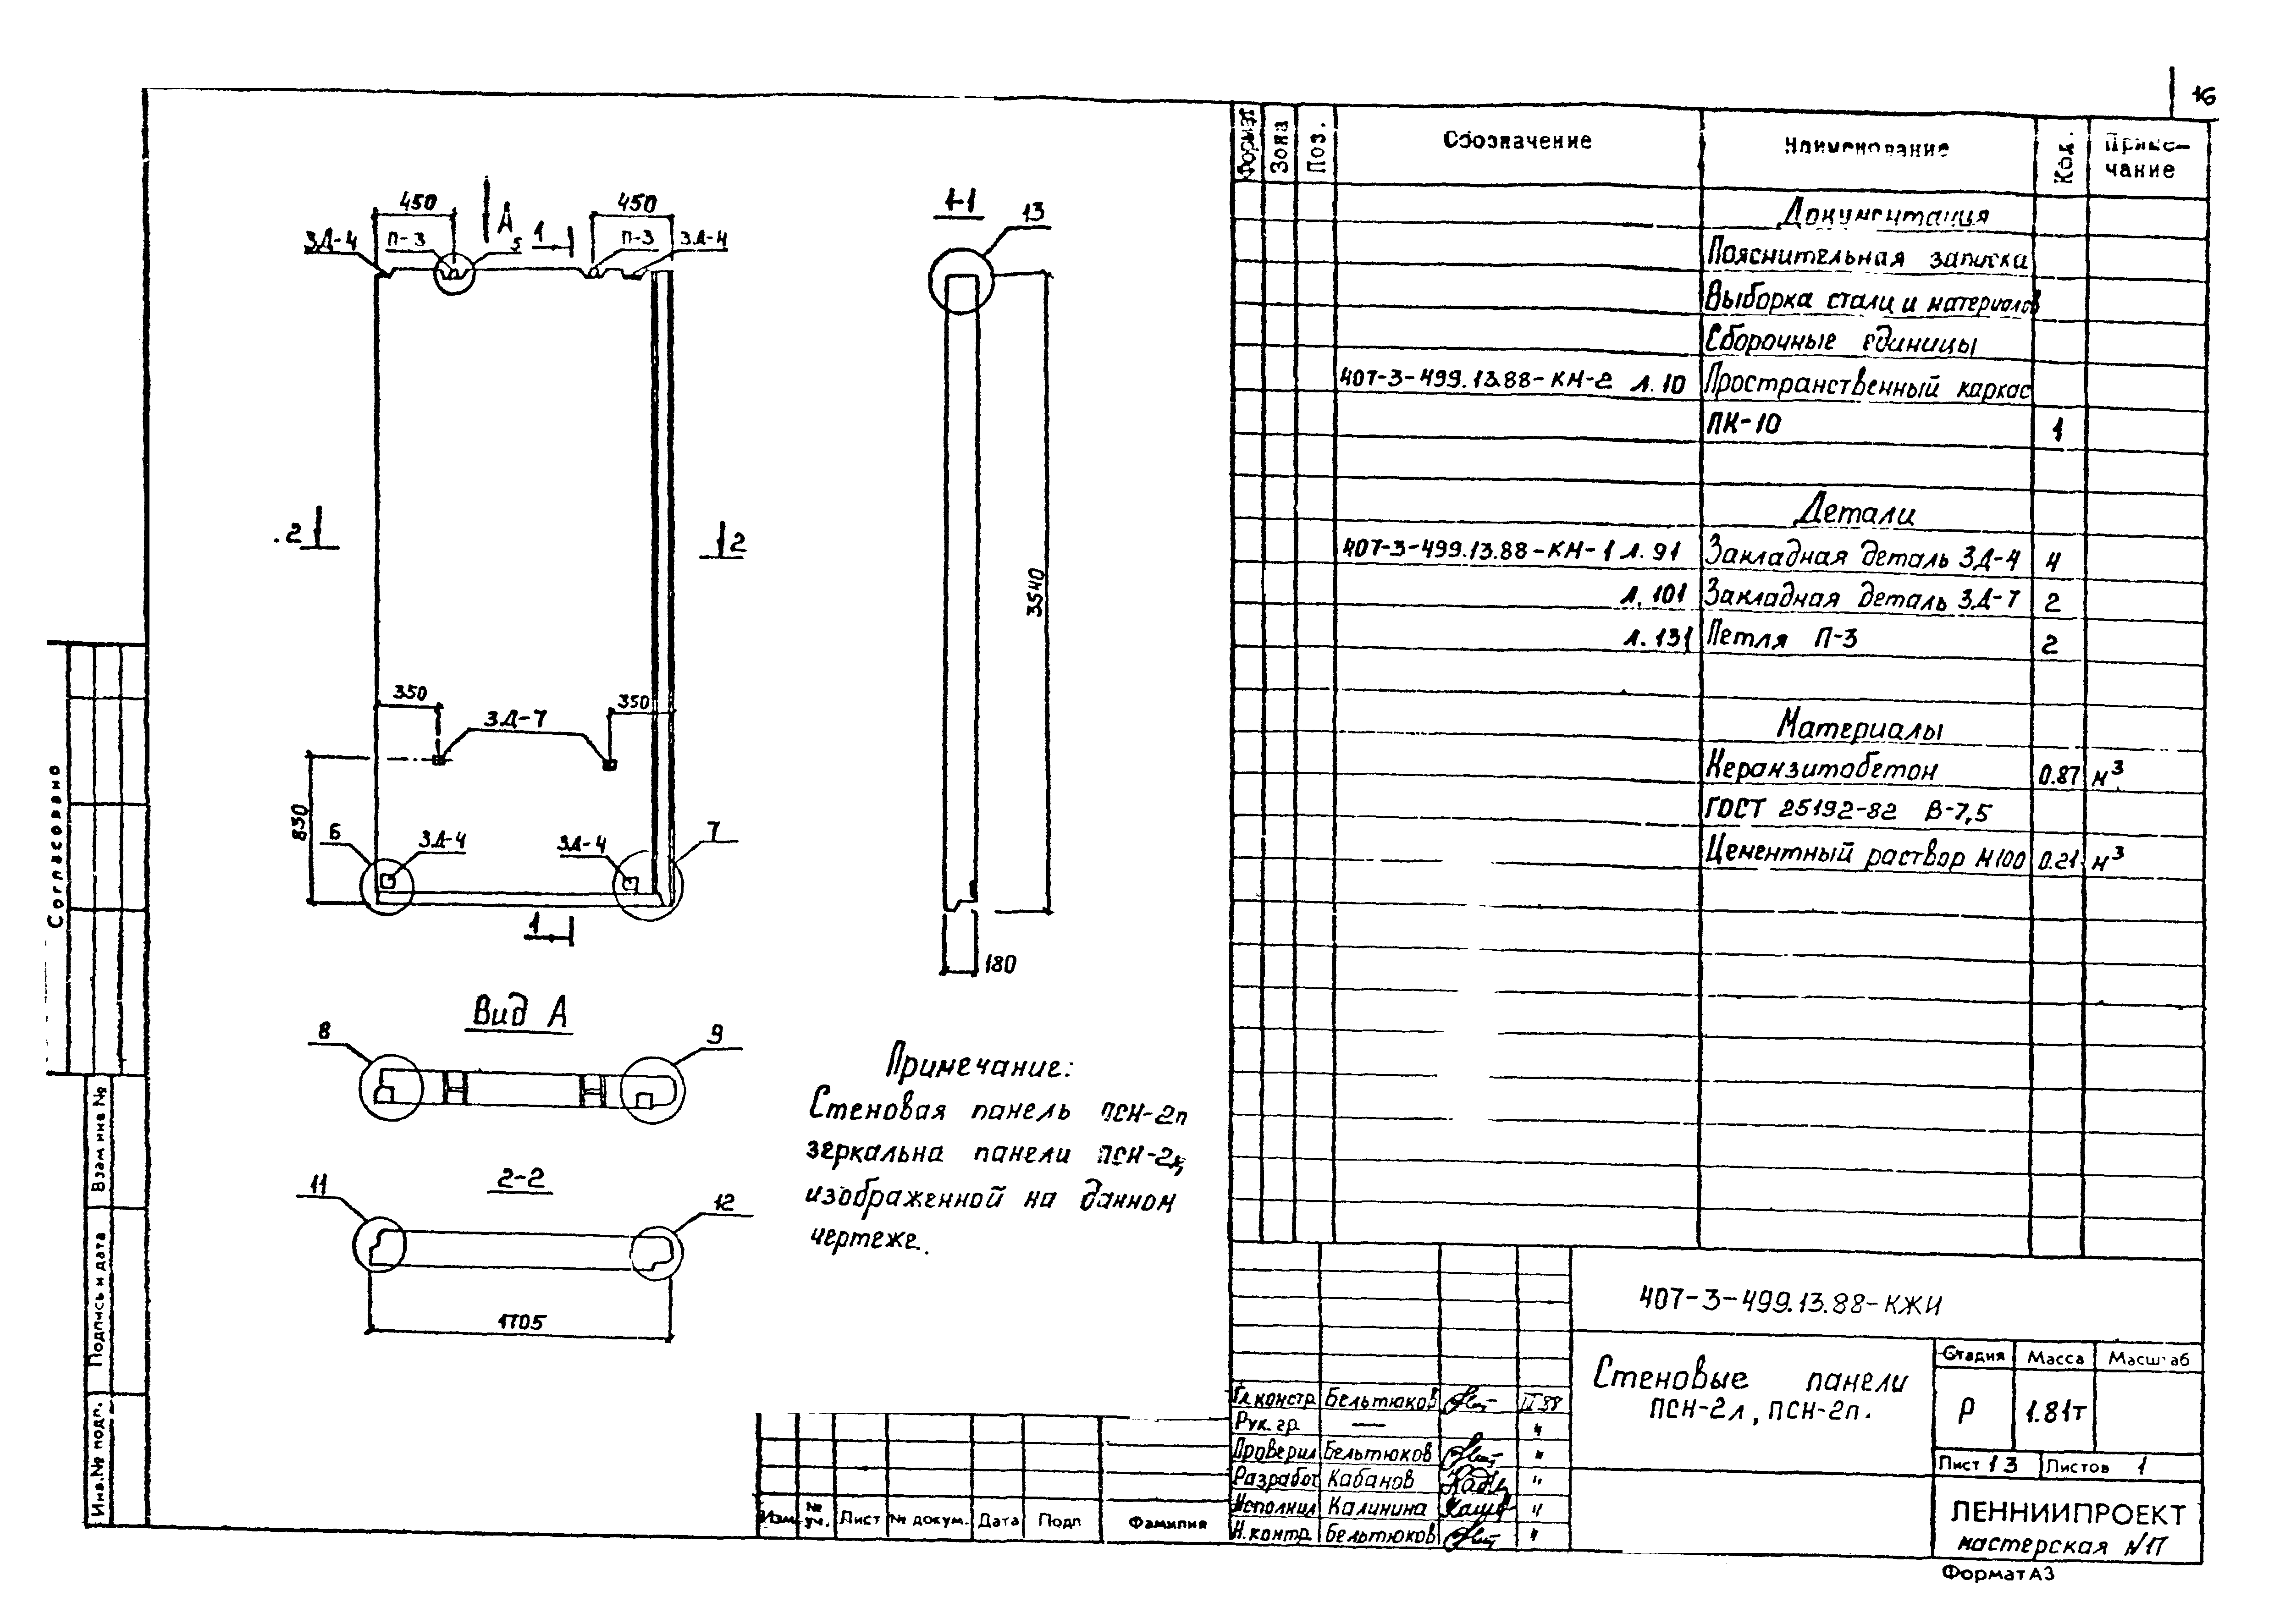 16
450
А
450
1
1-1
13
ЗД-4
П-3
5
П-3
ЗД-4
2
2
3540
350
350
ЗД-7
830
6
ЗД-4
ЗД-4
7
1
180
Вид А
8
9
2-2
11
12
1705
Примечание:
Стеновая панель ПСН-2п
зеркальна панели ПСН-2л,
изображенной на данном
чертеже.
Формат Зона Поз. Обозначение Наименование Кол. Приме-
чание
Документация
Пояснительная записка
Выборка стали и материалов
Сборочные единицы
407-3-499.13.88-КН-2 л.10 Пространственный каркас
ПК-10 1
Детали
407-3-499.13.88-КН-1 л.91 Закладная деталь ЗД-4 4
л.101 Закладная деталь ЗД-7 2
л.131 Петля П-3 2
Материалы
Керамзитобетон 0.87 м³
ГОСТ 25192-82 В-7,5
Цементный раствор М100 0.21 м³
Согласовано
Взам инв №
Подпись и дата
Инв.№ подл.
407-3-499.13.88-КЖИ
Стеновые панели
ПСН-2л, ПСН-2п.
Стадия Масса Масштаб
Р 1.81т
Лист 13 Листов 1
ЛЕННИИПРОЕКТ
мастерская №17
Гл.констр. Бельтюков IV 88
Рук.гр. — "
Проверил Бельтюков "
Разработ Кабанов "
Исполнил Калинина "
Н.контр. Бельтюков "
Изм. № уч. Лист № докум. Дата Подп Фамилия
Формат А3